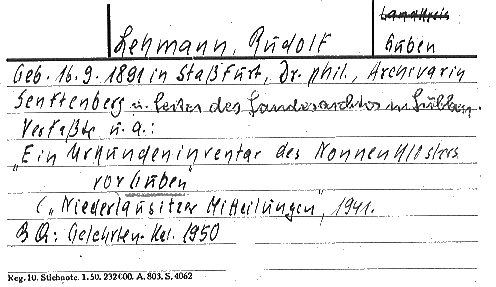 Lehmann, Rudolf
Landkreis
Guben
Geb. 16.9.1891 in Staßfurt, Dr. phil., Archivar in
Senftenberg u. Leiter des Landesarchivs in Lübben.
Verfaßte u.a.:
"Ein Urkundeninventar des Nonnenklosters
vor Guben"
("Niederlausitzer Mitteilungen", 1941.
BQ: Gelehrten-Kal. 1950
Reg. 10. Stichnote. 1. 50. 232000. A. 803. S. 4062